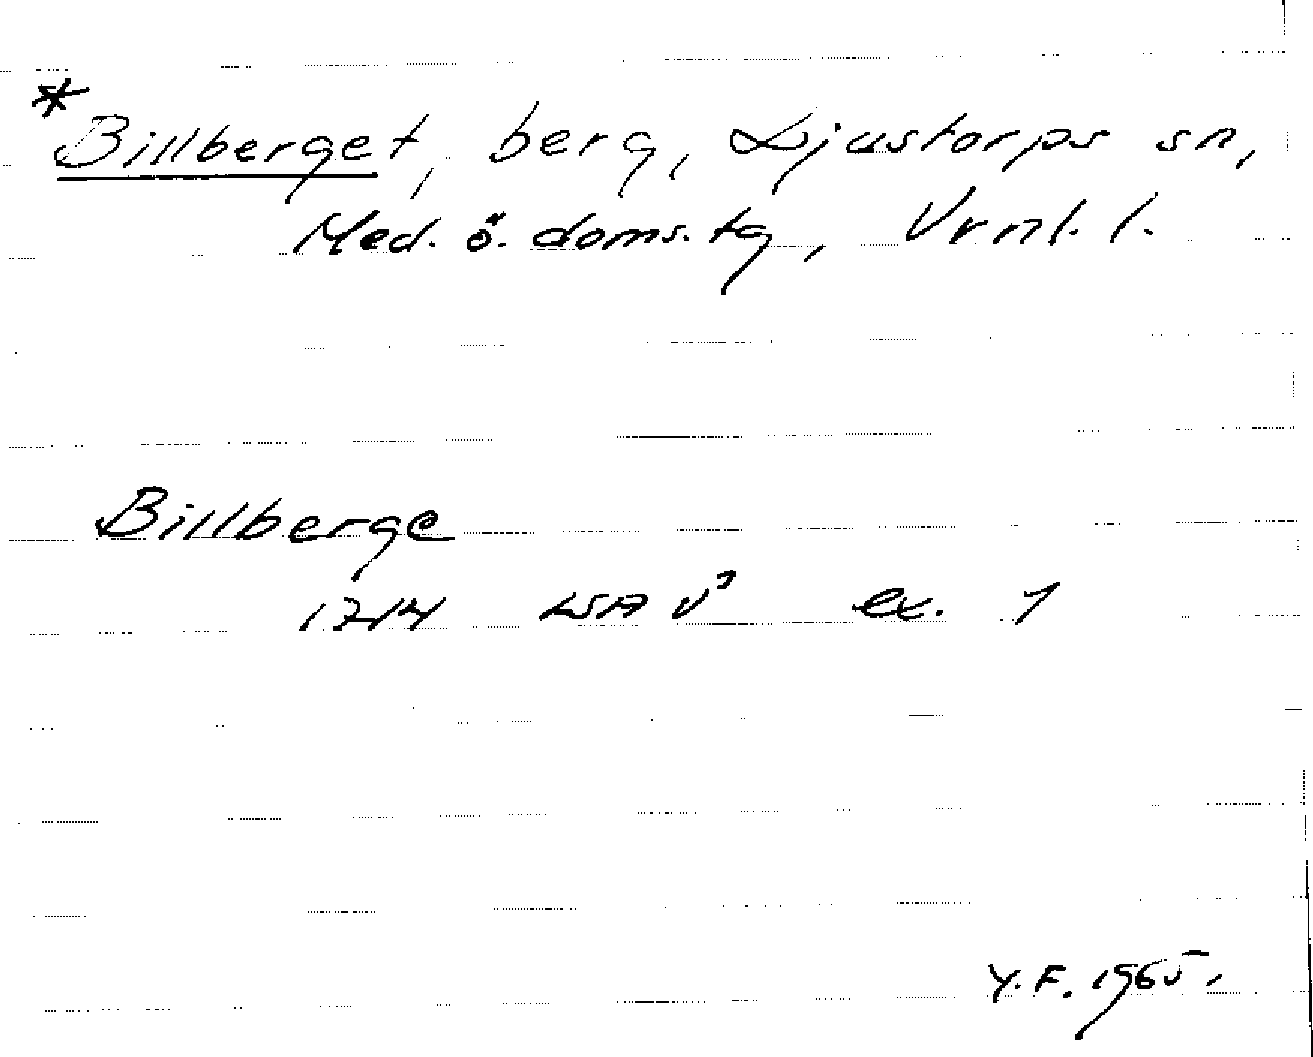 *Billberget, berg, Ljustorps sn,
Med. ö. doms. tg, Vrnl. l.
Billberge
1714 LSA V³ ex. 1
Y. F. 1965.